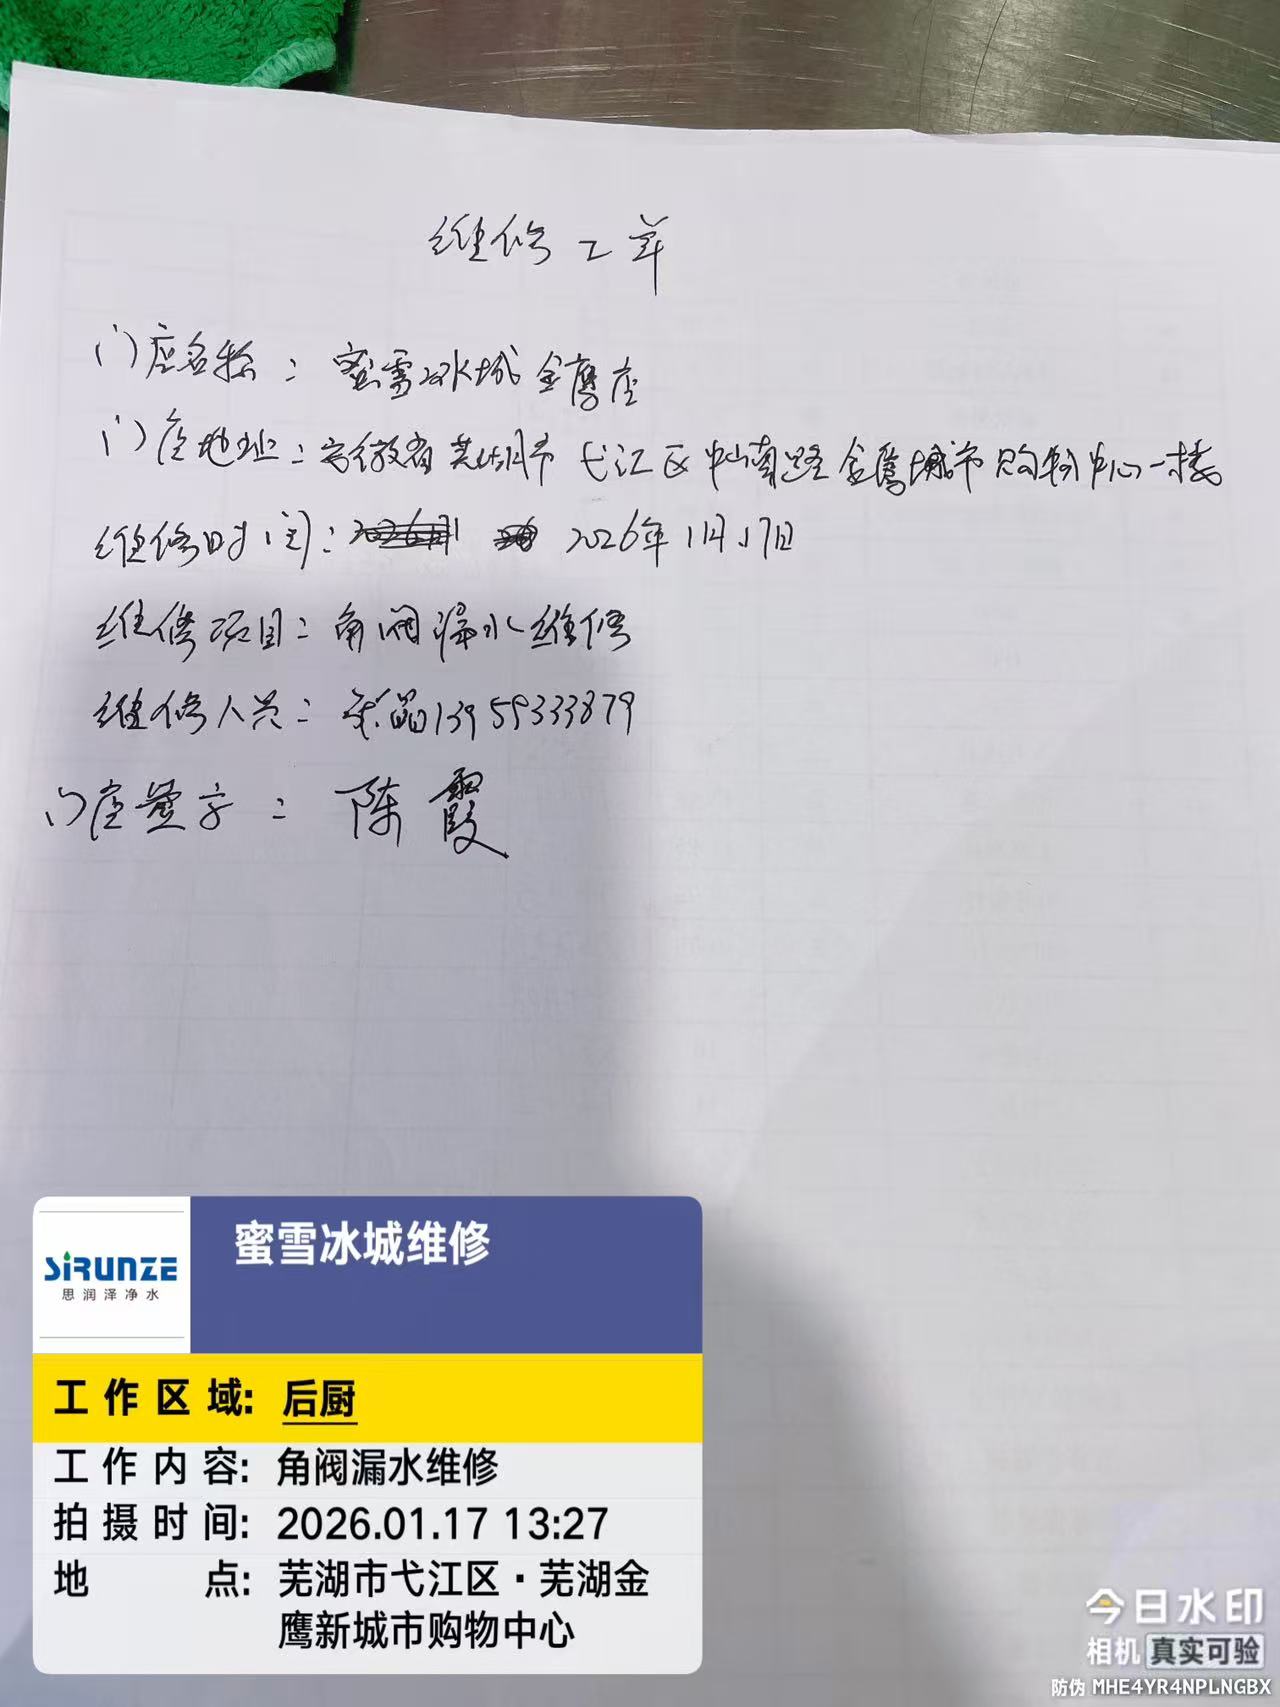 维修工单
门店名称：蜜雪冰城金鹰店
门店地址：安徽省芜湖市弋江区中山南路金鹰城市购物中心一楼
维修时间：2026年1月17日
维修项目：角阀漏水维修
维修人员：晶13959333879
门店签字：陈霞
SiRUNZE
思润泽净水
蜜雪冰城维修
工作区域：后厨
工作内容：角阀漏水维修
拍摄时间：2026.01.17 13:27
地点：芜湖市弋江区·芜湖金
鹰新城市购物中心
今日水印
相机 真实可验
防伪 MHE4YR4NPLNGBX